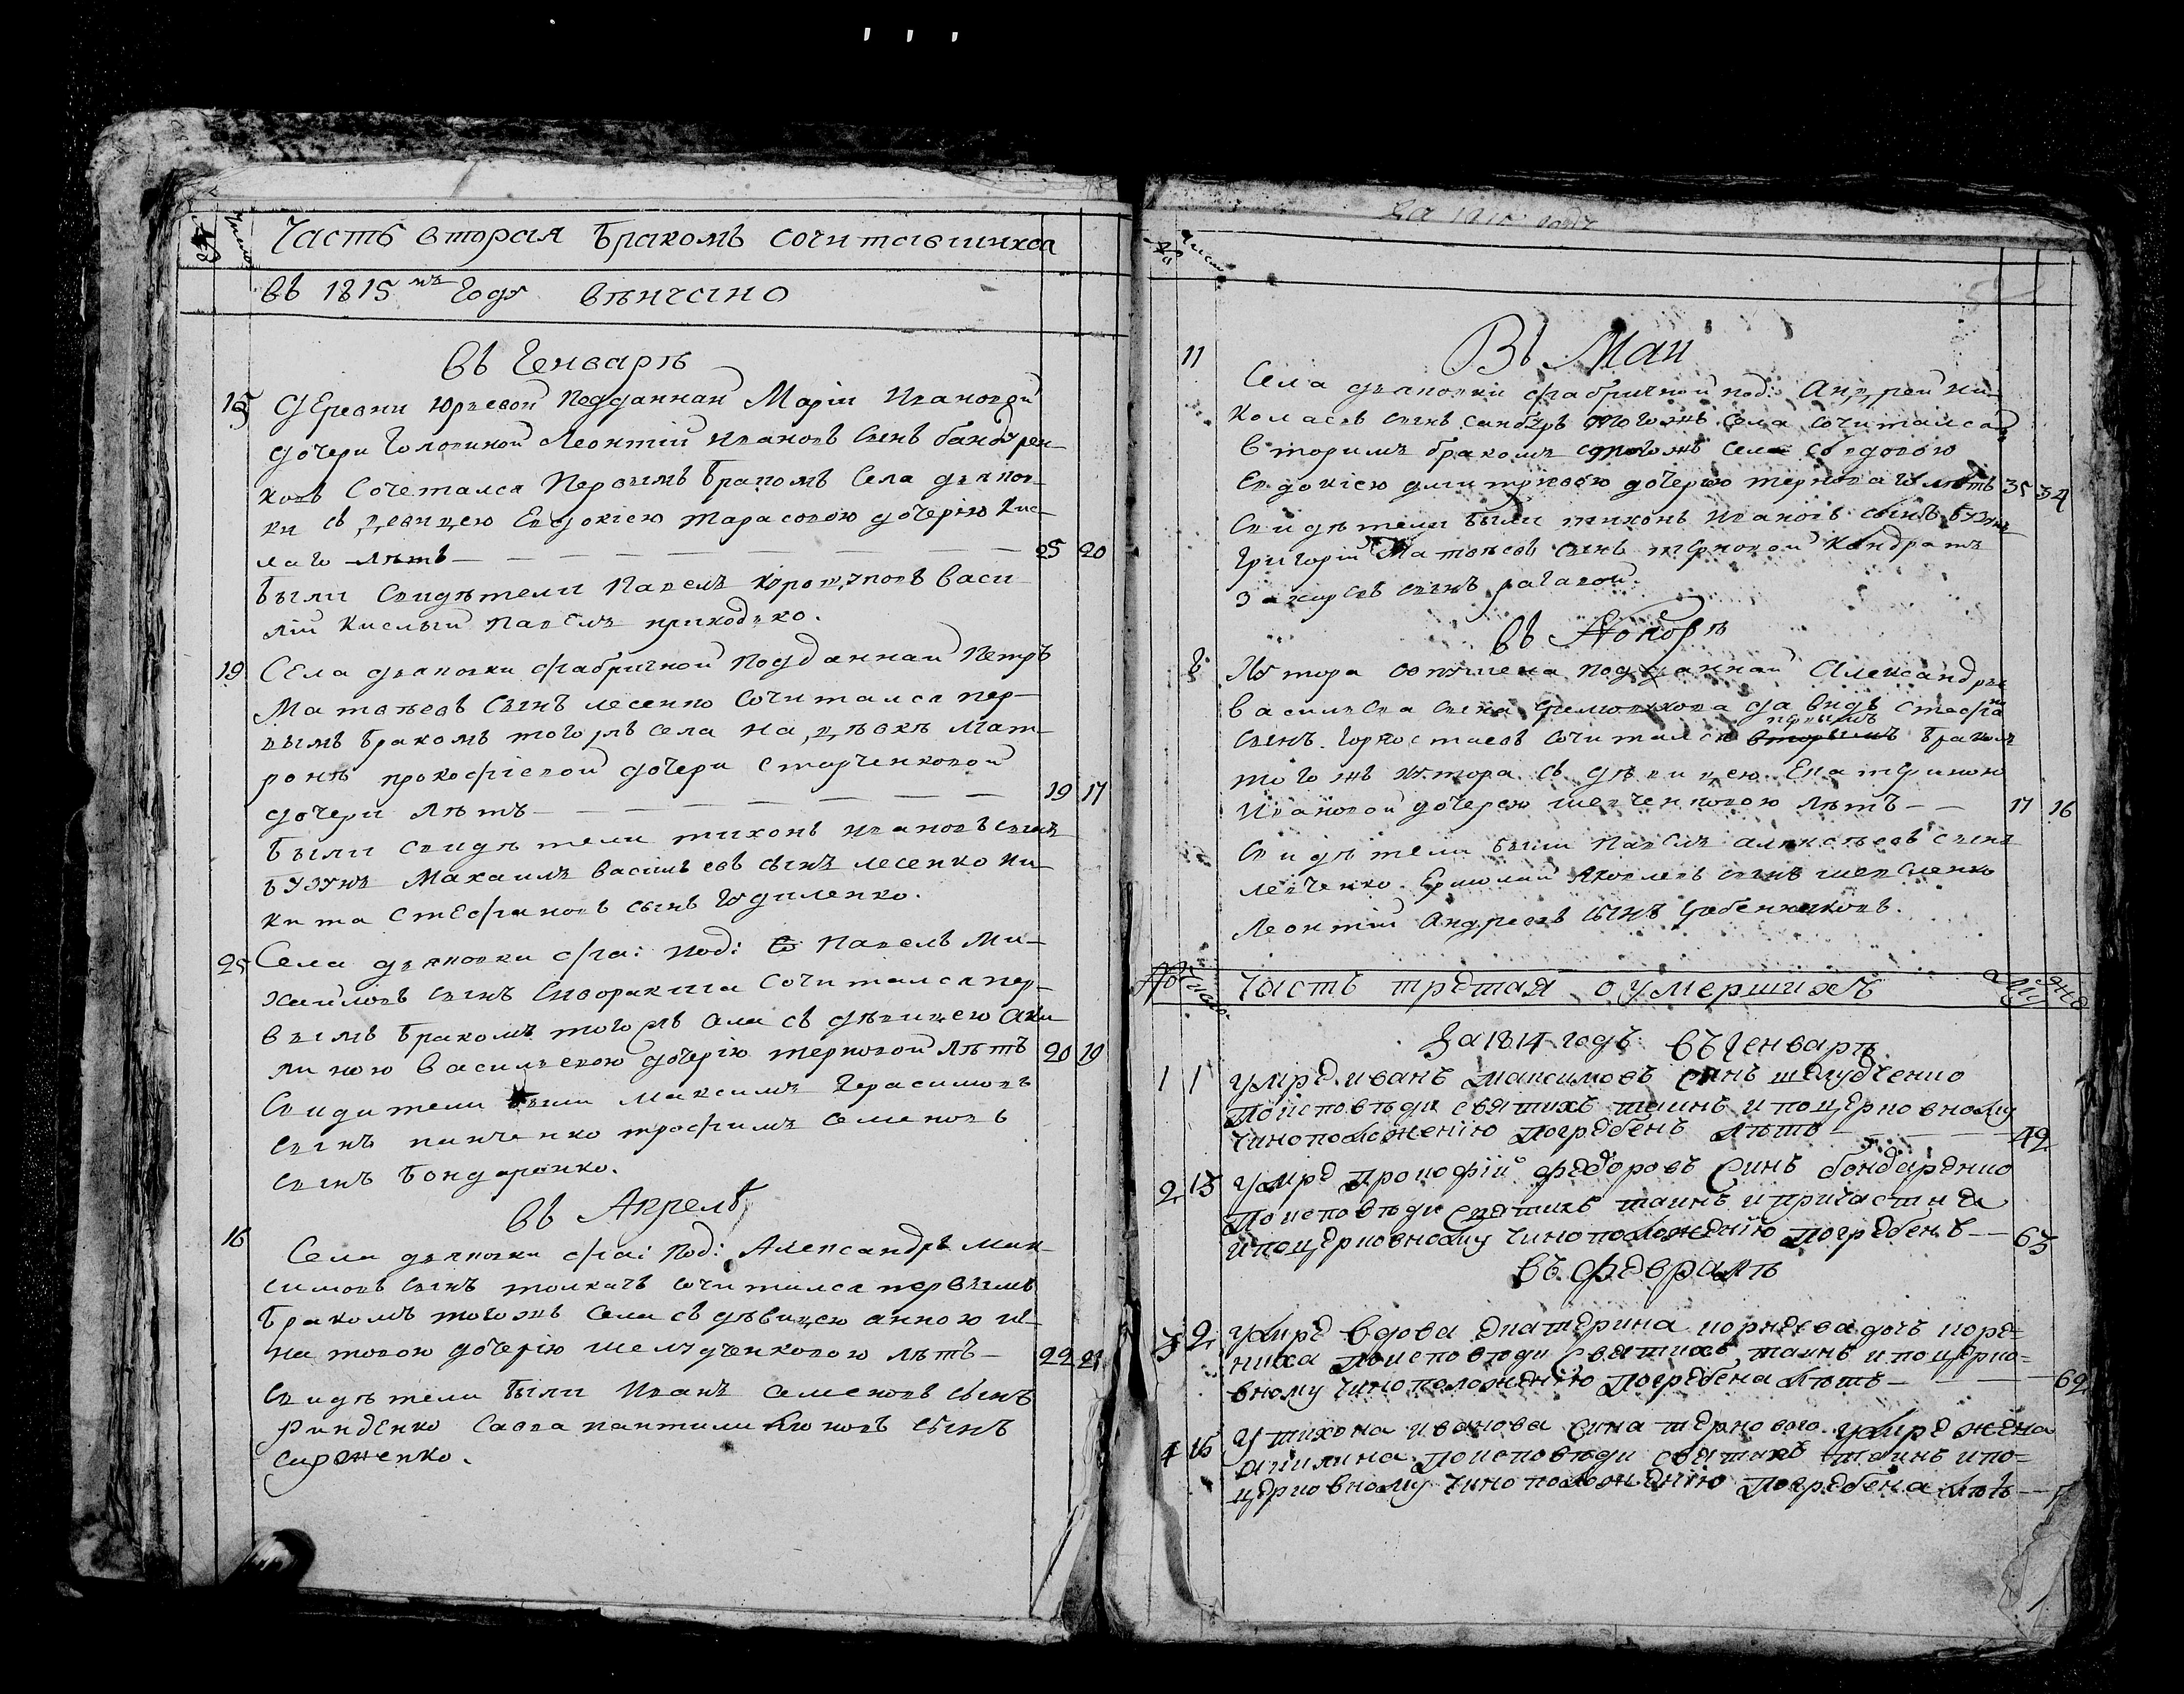 Часть вторая бракомъ сочитавшихся
въ 1815 мъ Году вѣнчано
въ Генварѣ
15 дЕревни Юрьевой Подданнай Маріи Ивановой
дочери Головиной Леонтій Ивановъ сынъ бандурен-
ковъ Сочетался Первымъ бракомъ Села дьяков-
ки съ девицею Евдокією тарасовою дочерію Кис-
лаго лѣтъ 25 20
были Свидѣтели Павелъ Васи
лій Кислый Павелъ приходько.
19 СЕла дьяковки фабричной Подданнай Петръ
Матвѣевъ Сынъ лесенко Сочитался пер-
вымъ бракомъ тогожъ села на дѣвкѣ Мат-
ронѣ прокофіевой дочери Старченковой
дочери лѣтъ 19 17
были свидѣтели тихонъ ивановъ сынъ
бузукъ Михаилъ васильевъ сынъ лесенко Ни-
кита стЕфановъ сынъ
25 Села дьяковки фа: под: Павелъ Ми-
хайловъ сынъ Сиворакша Сочитался пер-
вымъ бракомъ тогожъ села съ дѣвицею Аки-
линою васильевою дочерію терновой лѣтъ 20 19
Свидители были Максимъ Герасимовъ
сынъ панченко трофимъ Семеновъ
сынъ бондаренко.
въ Апрелѣ
16 Села дьяковки фа: Под: Александръ Мак-
симовъ сынъ толкачъ сочитился первымъ
бракомъ тогожъ Села съ дѣвицею анною иг-
натовою дочерію шелудченковою лѣтъ 22 21
свидѣтели были Иванъ семеновъ сынъ
Савва сынъ
За 181 годъ
Въ Маи
11 Села дьяковки фабричной под: Андрей ни-
колаевъ сынъ тогожъ Села сочитался
вторимъ бракомъ тогожъ села со вдовою
Евдокією дмитрієвою дочерью терноваго лѣтъ 35 34
Свидѣтели были тихонъ ивановъ сынъ бузукъ
Григорій Матвѣевъ сынъ терновой Кондратъ
сынъ рагавой.
въ
Хутора подданнай Александръ
василіева сина стефа
сынъ Горностаевъ сочитался вторымъ первымъ бракомъ
тогожъ хутора съ дѣвицею Екатериною
Ивановой дочерею шевченковою лѣтъ 17 16
Свидѣтели были Павелъ алексѣевъ сынъ
левченко Ермолай Яковлевъ сынъ
Леонтій Андреевъ сынъ
Часть третая о умершихъ
За 1814 годъ въ генварѣ
1 1 умре иванъ максимовъ синъ шелудченко
По исповѣди святихъ таинъ и по церковному
чиноположенію погребенъ лѣтъ 42
2 13 умре Прокофій федоровъ Синъ бондаренко
По исповѣди Святихъ таинъ и причастиѣ
и по церковному чиноположенію погребенъ 63
въ февралѣ
3 2 умре вдова екатерина корнѣева дочь коре-
ниха По исповѣди Святихъ таинъ и по церко-
вному чиноположенію погребена лѣтъ 62
4 16 у тихона иванова сина тернового умре жена
акилина По исповѣди святихъ таинъ и по-
церковному чиноположенію погребена лѣтъ